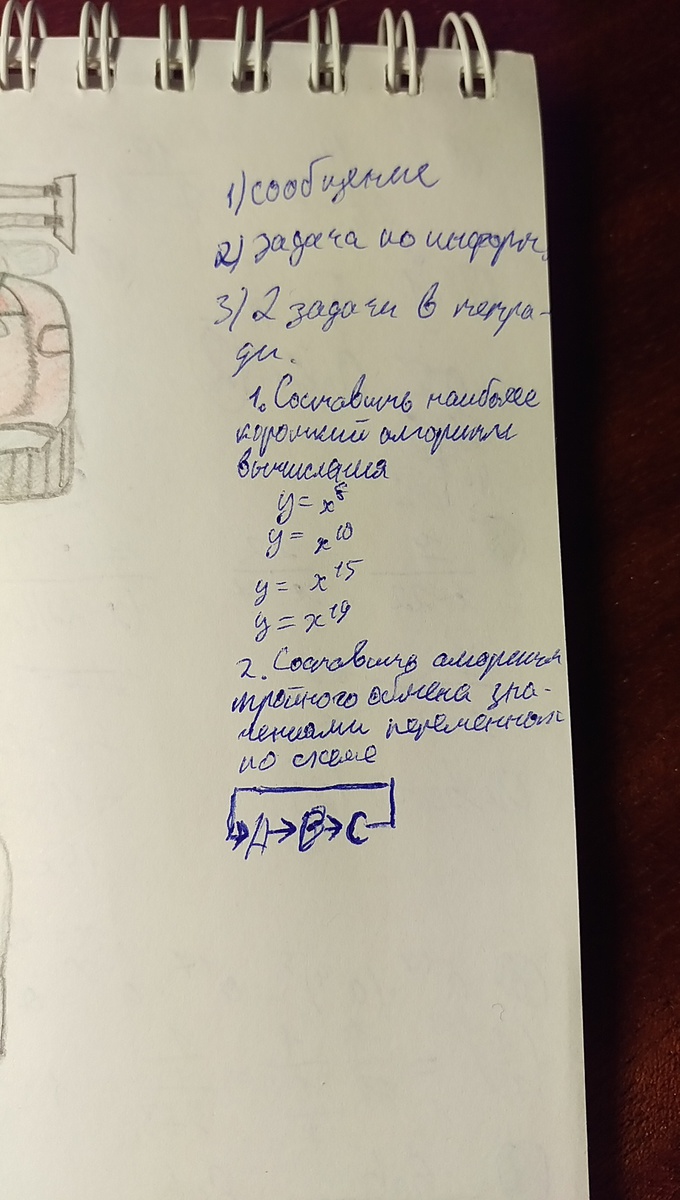 1) сообщение
2) Задача по информ.
3) 2 задачи в тетра-
ди.
1. Составить наиболее
короткий алгоритм
вычисления
y = x⁸
y = x¹⁰
y = x¹⁵
y = x¹⁹
2. Составить алгоритм
тройного обмена зна-
чениями переменной
по схеме
→A→B→C